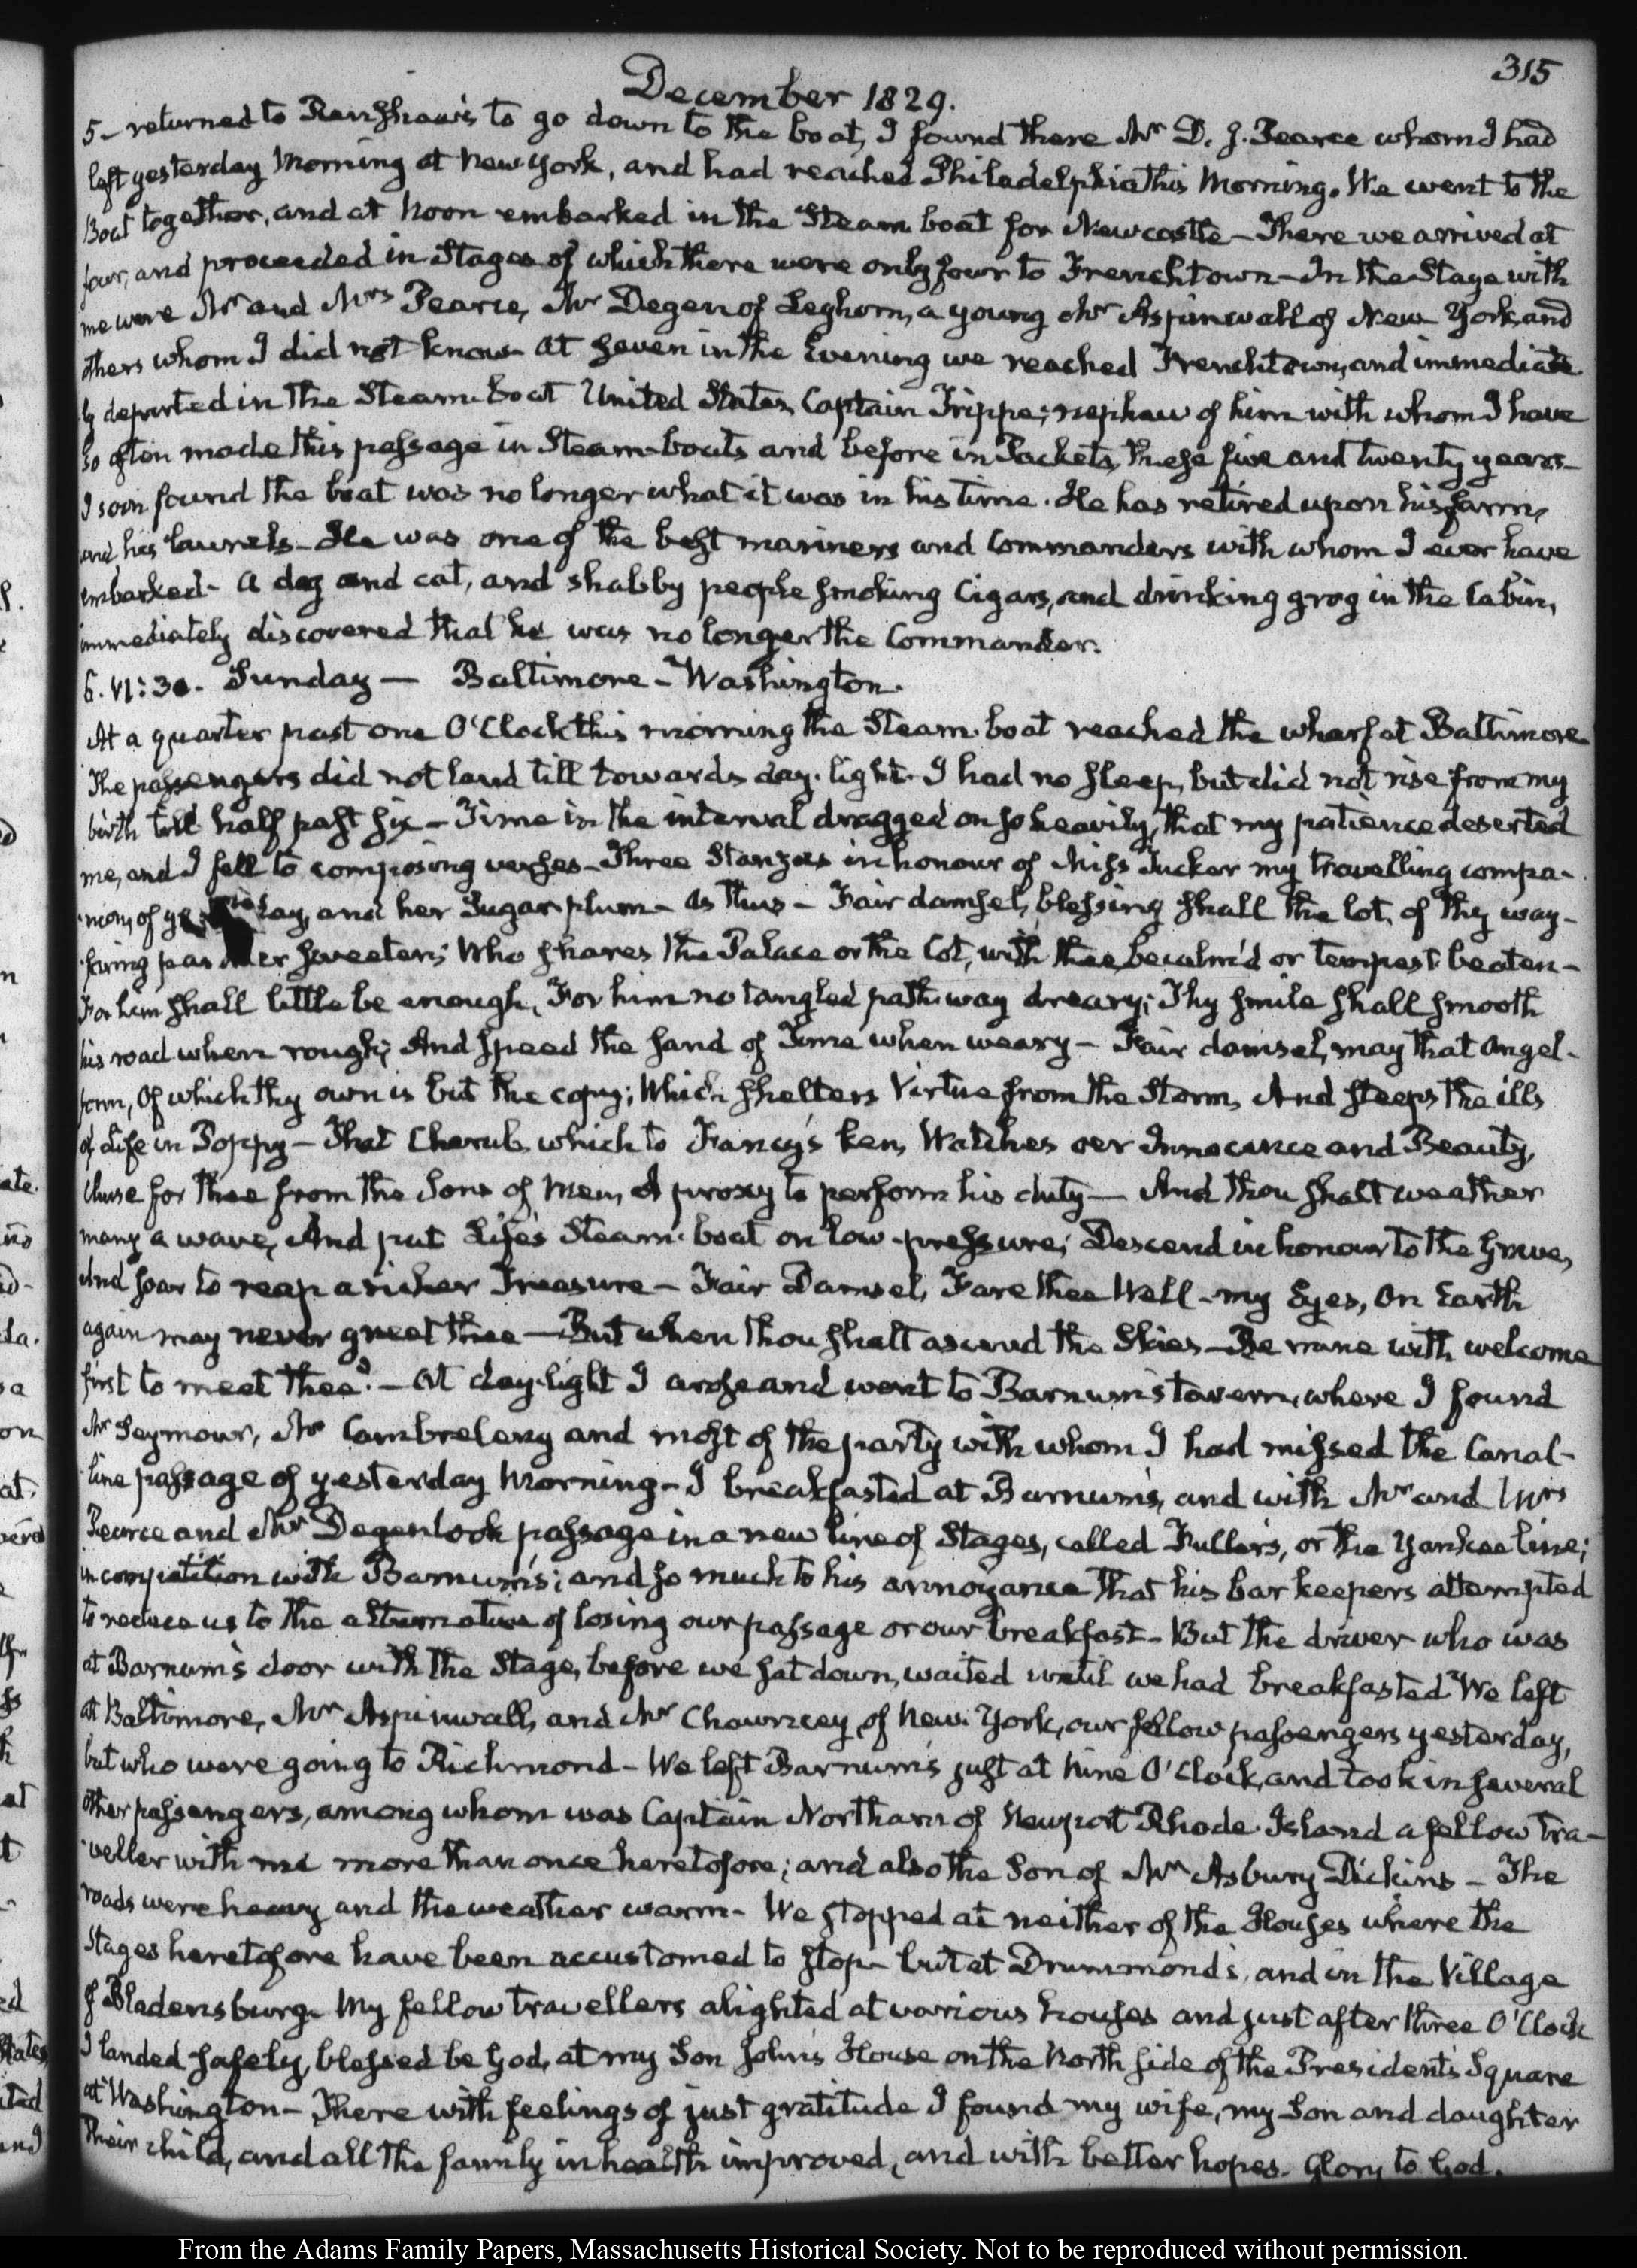 315
December 1829.
5 - returned to Renshaw's to go down to the boat, I found there Mr D. J. Pearce whom I had
left yesterday Morning at New York, and had reached Philadelphia this Morning. We went to the
Boat together, and at Noon embarked in the Steam boat for Newcastle - There we arrived at
four, and proceeded in Stages of which there were only four to Frenchtown - In the Stage with
me were Mr and Mrs Pearce, Mr Degen of Leghorn, a young Mr Aspinwall of New York, and
others whom I did not know - At seven in the Evening we reached Frenchtown, and immediate
ly departed in the Steam-boat United States, Captain Trippe; nephew of him with whom I have
so often made this passage in Steam-boats and before in Packets, these five and twenty years -
I soon found the boat was no longer what it was in his time. He has retired upon his farm,
and his laurels - He was one of the best mariners and Commanders with whom I ever have
embarked - A dog and cat, and shabby people smoking Cigars, and drinking grog in the Cabin,
immediately discovered that he was no longer the Commander.
6. VI:30. Sunday - Baltimore - Washington.
At a quarter past one O'Clock this morning the Steam-boat reached the wharf at Baltimore
The passengers did not land till towards day-light. I had no sleep, but did not rise from my
birth till half past six - Time in the interval dragged on so heavily, that my patience deserted
me, and I fell to composing verses - Three Stanzas in honour of Miss Tucker my travelling compa-
nion, of day, and her Sugar-plum - As thus - Fair damsel, blessing shall the lot, of thy way-
faring sweeten; Who shares the Palace or the Cot, with thee, becalm'd or tempest-beaten -
For him shall little be enough, For him no tangled path-way dreary; Thy smile shall smooth
his road when rough; And speed the sand of Time when weary - Fair damsel, may that Angel-
form, Of which thy own is but the copy; Which shelters Virtue from the Storm, And steeps the ills
of Life in Poppy - That Cherub, which to Fancy's ken, Watches oer Innocence and Beauty,
Chuse for thee from the Sons of Men, A proxy to perform his duty - And thou shalt weather
many a wave, And put Life's Steam-boat on low-pressure; Descend in honour to the Grave,
And soar to reap a richer Treasure - Fair Damsel, Fare thee Well - my Eyes, On Earth
again may never greet thee - But when thou shalt ascend the Skies - Be mine with welcome
first to meet thee. - At day-light I arose and went to Barnum's tavern, where I found
Mr Seymour, Mr Cambreleng and most of the party with whom I had missed the Canal-
line passage of yesterday Morning - I breakfasted at Barnum's, and with Mr and Mrs
Pearce and Mr Degen took passage in a new line of Stages, called Fuller's, or the Yankee line;
in competition with Barnum's; and so much to his annoyance that his bar keepers attempted
to reduce us to the alternative of losing our passage or our breakfast - But the driver who was
at Barnum's door with the Stage, before we sat down, waited until we had breakfasted We left
at Baltimore, Mr Aspinwall, and Mr Chauncey of New York, our fellow passengers yesterday,
but who were going to Richmond - We left Barnum's just at Nine O'Clock, and took in several
other passengers, among whom was Captain Northam of Newport Rhode-Island a fellow tra-
veller with me more than once heretofore; and also the Son of Mr Asbury Dickins - The
roads were heavy and the weather warm - We stopped at neither of the Houses where the
Stages heretofore have been accustomed to stop - but at Drummond's, and in the Village
of Bladensburg - My fellow travellers alighted at various houses and just after three O'Clock
I landed safely, blessed be God, at my Son John's House on the North side of the President's Square
at Washington - There with feelings of just gratitude I found my wife, my Son and daughter
their child, and all the family in health improved, and with better hopes. Glory to God.
From the Adams Family Papers, Massachusetts Historical Society. Not to be reproduced without permission.